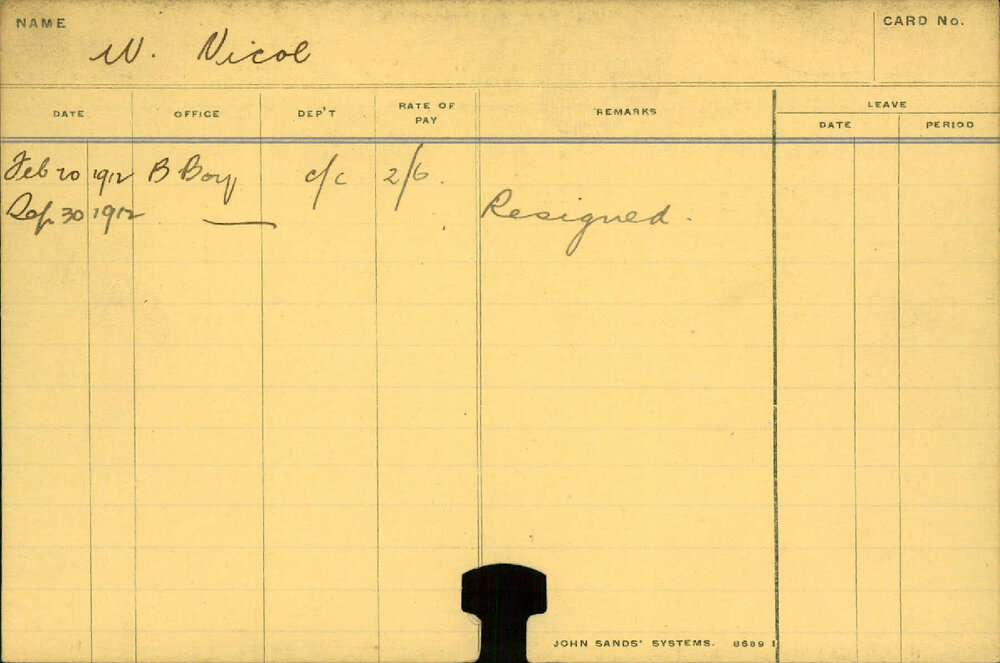 NAME
W. Nicol
CARD No.
DATE OFFICE DEP'T RATE OF PAY REMARKS LEAVE
DATE PERIOD
Feb 20 1912 B Boy c/c 2/6.
Sep. 30 1912 — Resigned.
JOHN SANDS' SYSTEMS. 8689 1